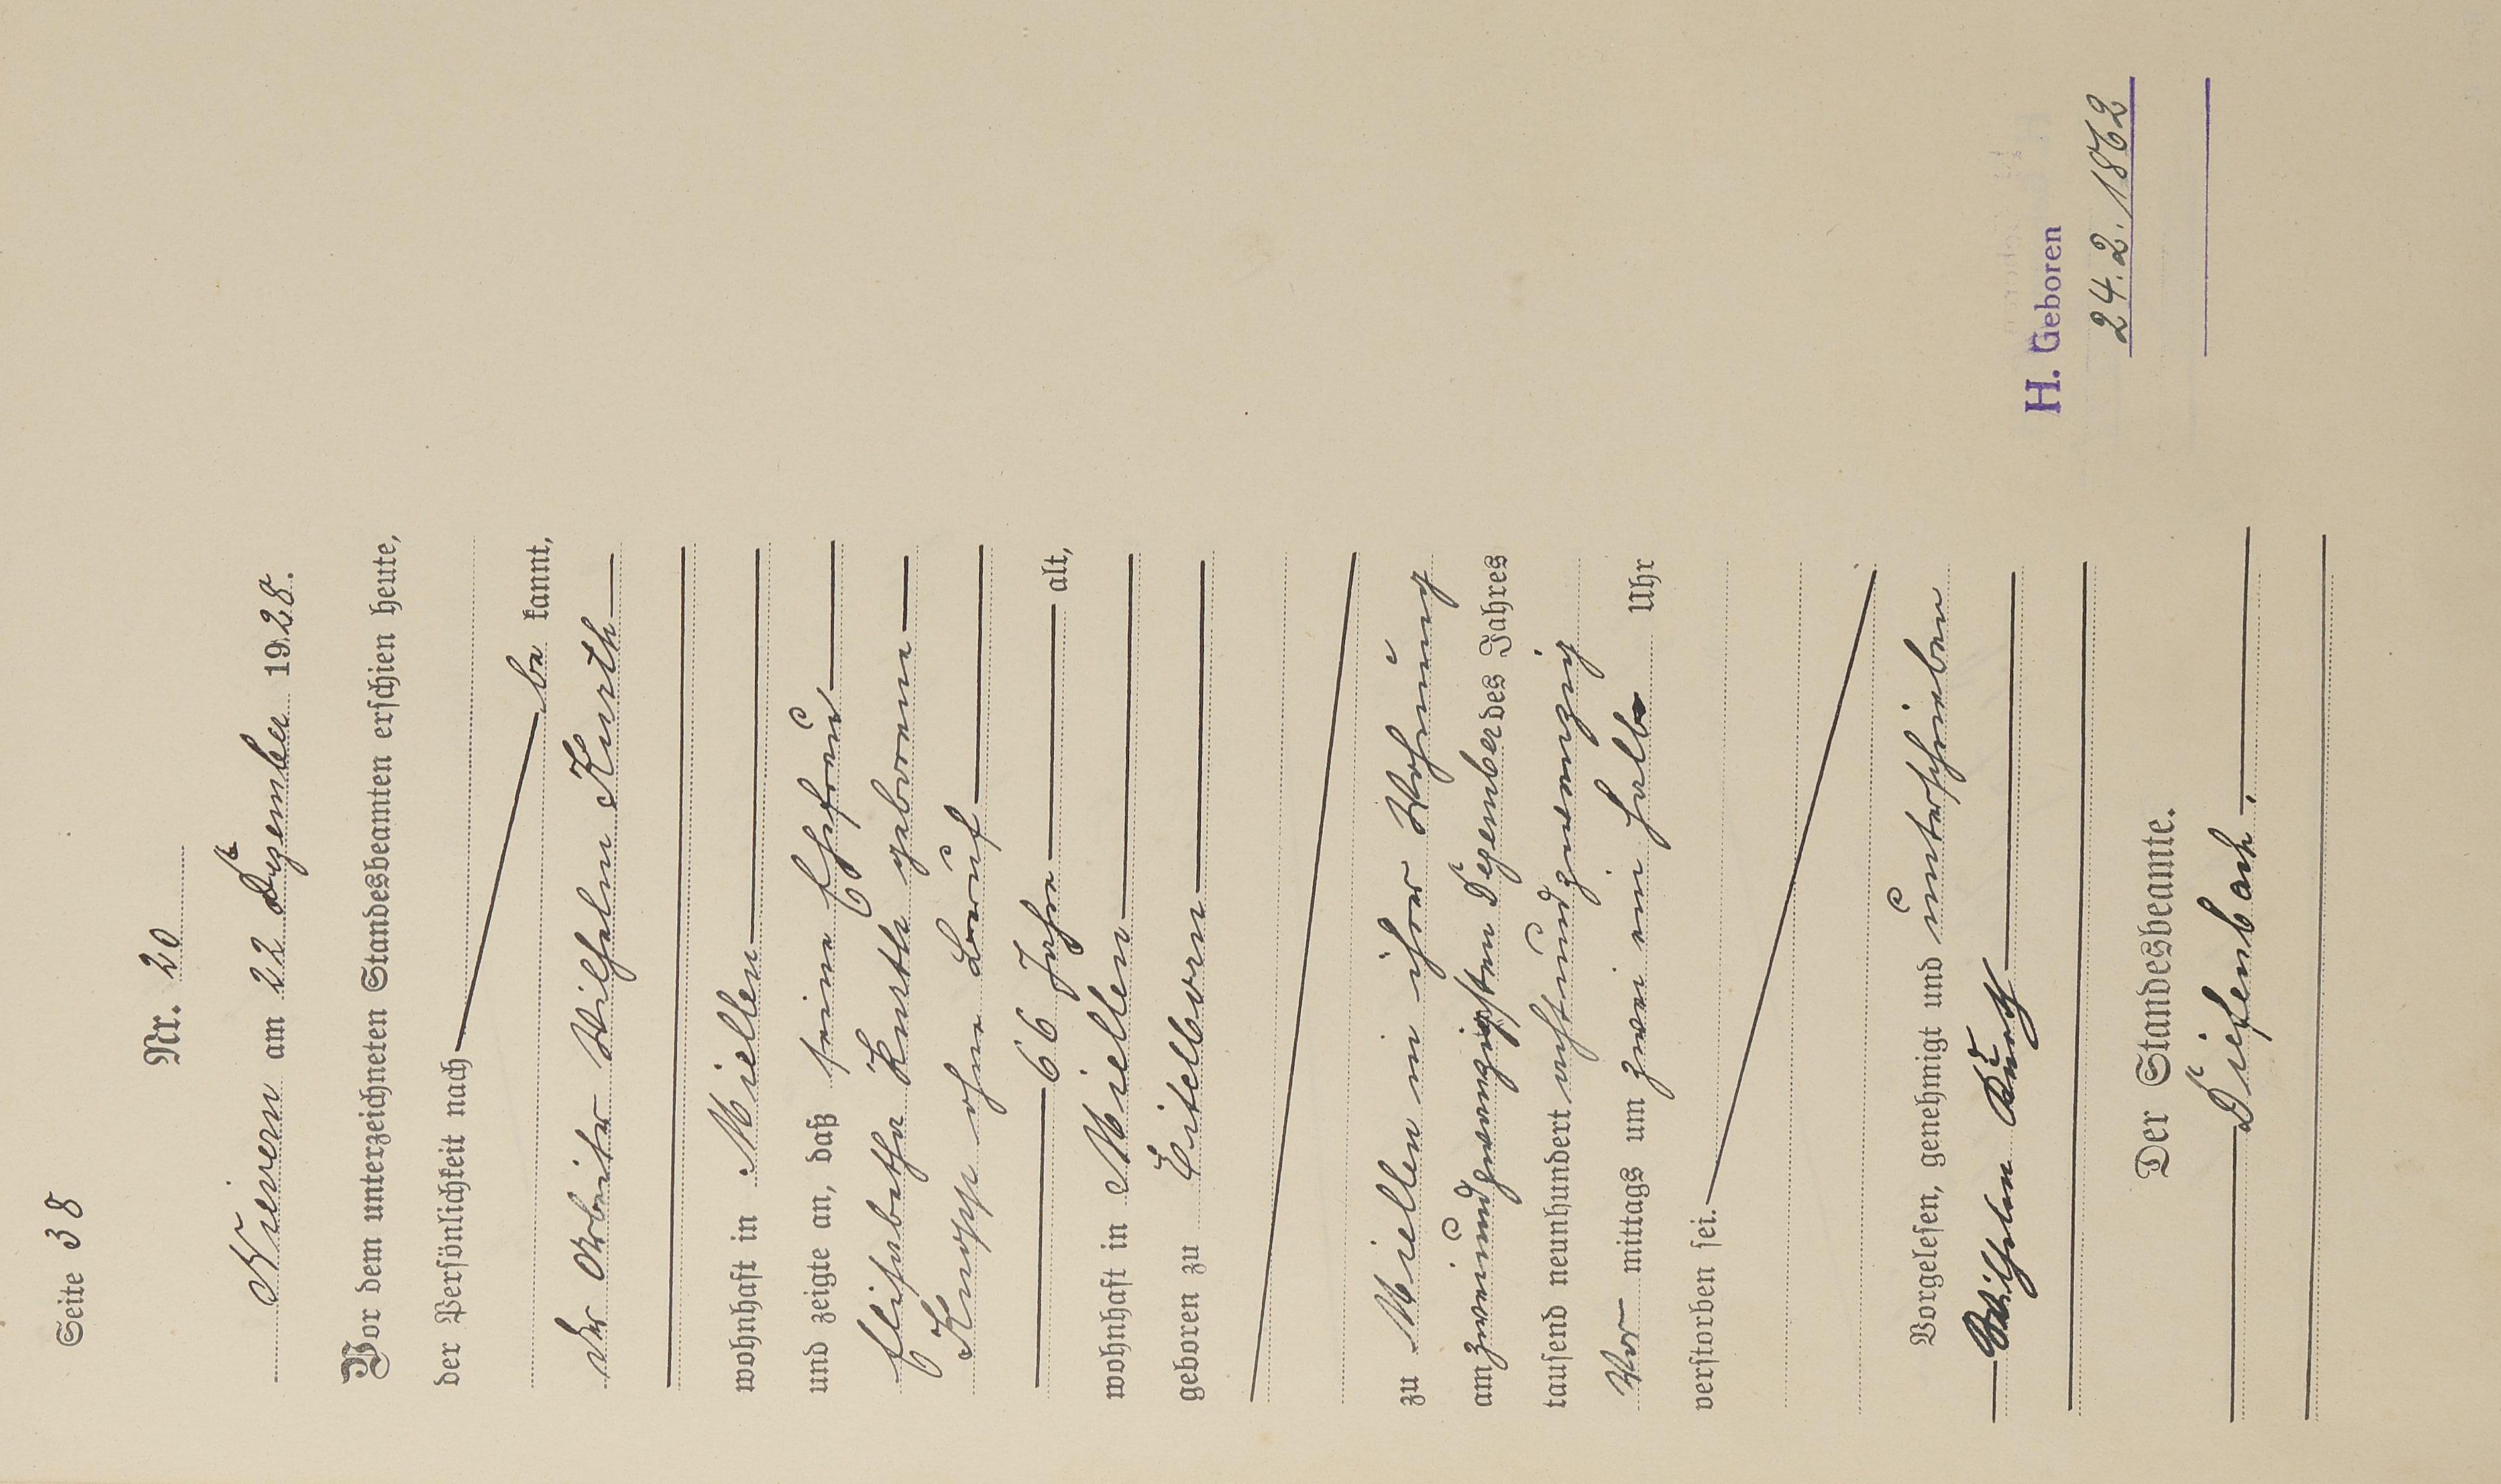 Seite 38
Nr. 20
Nievern am 22 Dezember 1928.
Vor dem unterzeichneten Standesbeamten erschien heute,
der Persönlichkeit nach
be kannt,
der Arbeiter Wilhelm Kurth
wohnhaft in Miellen
und zeigte an, daß seine Ehefrau
Elisabetha Kurth geborene
Knopp ohne Beruf
66 Jahre alt,
wohnhaft in Miellen
geboren zu Eitelborn
zu Miellen in ihrer Wohnung
am zweiundzwanzigsten Dezember des Jahres
tausend neunhundert achtundzwanzig
Vor mittags um zwei ein halb Uhr
verstorben sei.
Vorgelesen, genehmigt und unterschrieben
Wilhelm
Der Standesbeamte.
Diefenbach.
H. Geboren
24.2.1862